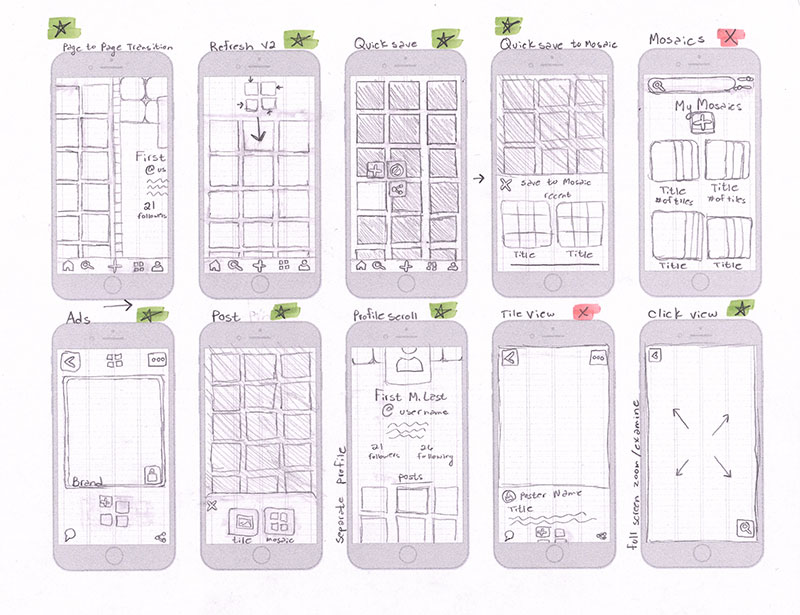 Page to Page Transition
First
@ us
21
followers
Refresh V2
Quick save
Quick save to Mosaic
save to Mosaic
recent
Title
Title
Mosaics
My Mosaics
Title
# of tiles
Title
# of tiles
Title
Title
Ads
Brand
Post
tile
mosaic
Profile scroll
separate profile
First M. Last
@ username
21
followers
26
following
posts
Tile view
Poster Name
Title
Click view
full screen zoom/examine